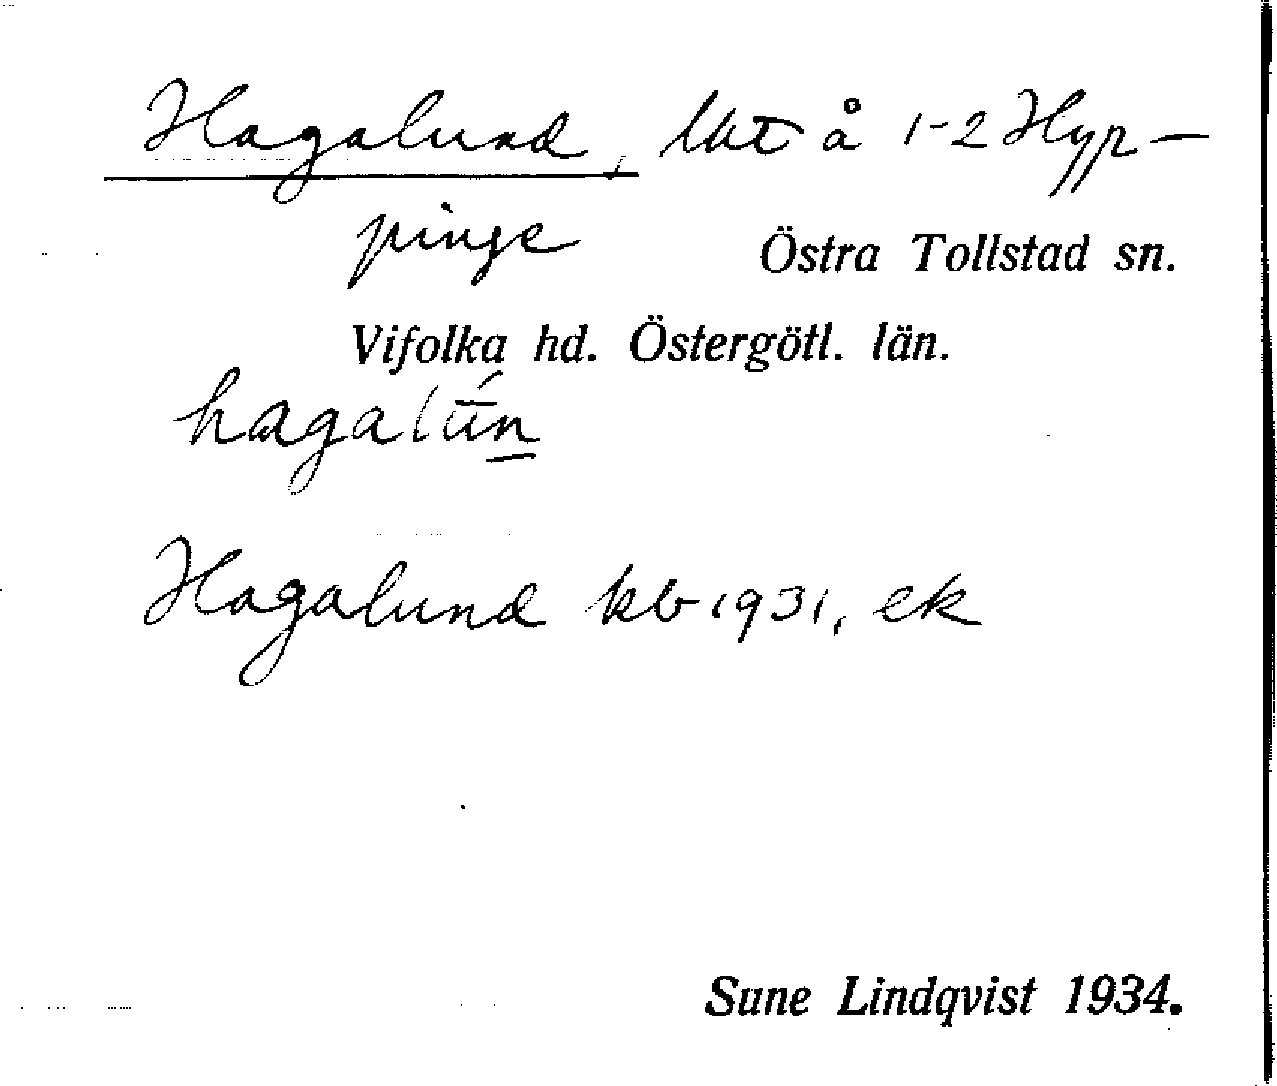 Hagalund, lht å 1-2 Hyp-
pinge Östra Tollstad sn.
Vifolka hd. Östergötl. län.
hagalún
Hagalund kb 1931, ek
Sune Lindqvist 1934.